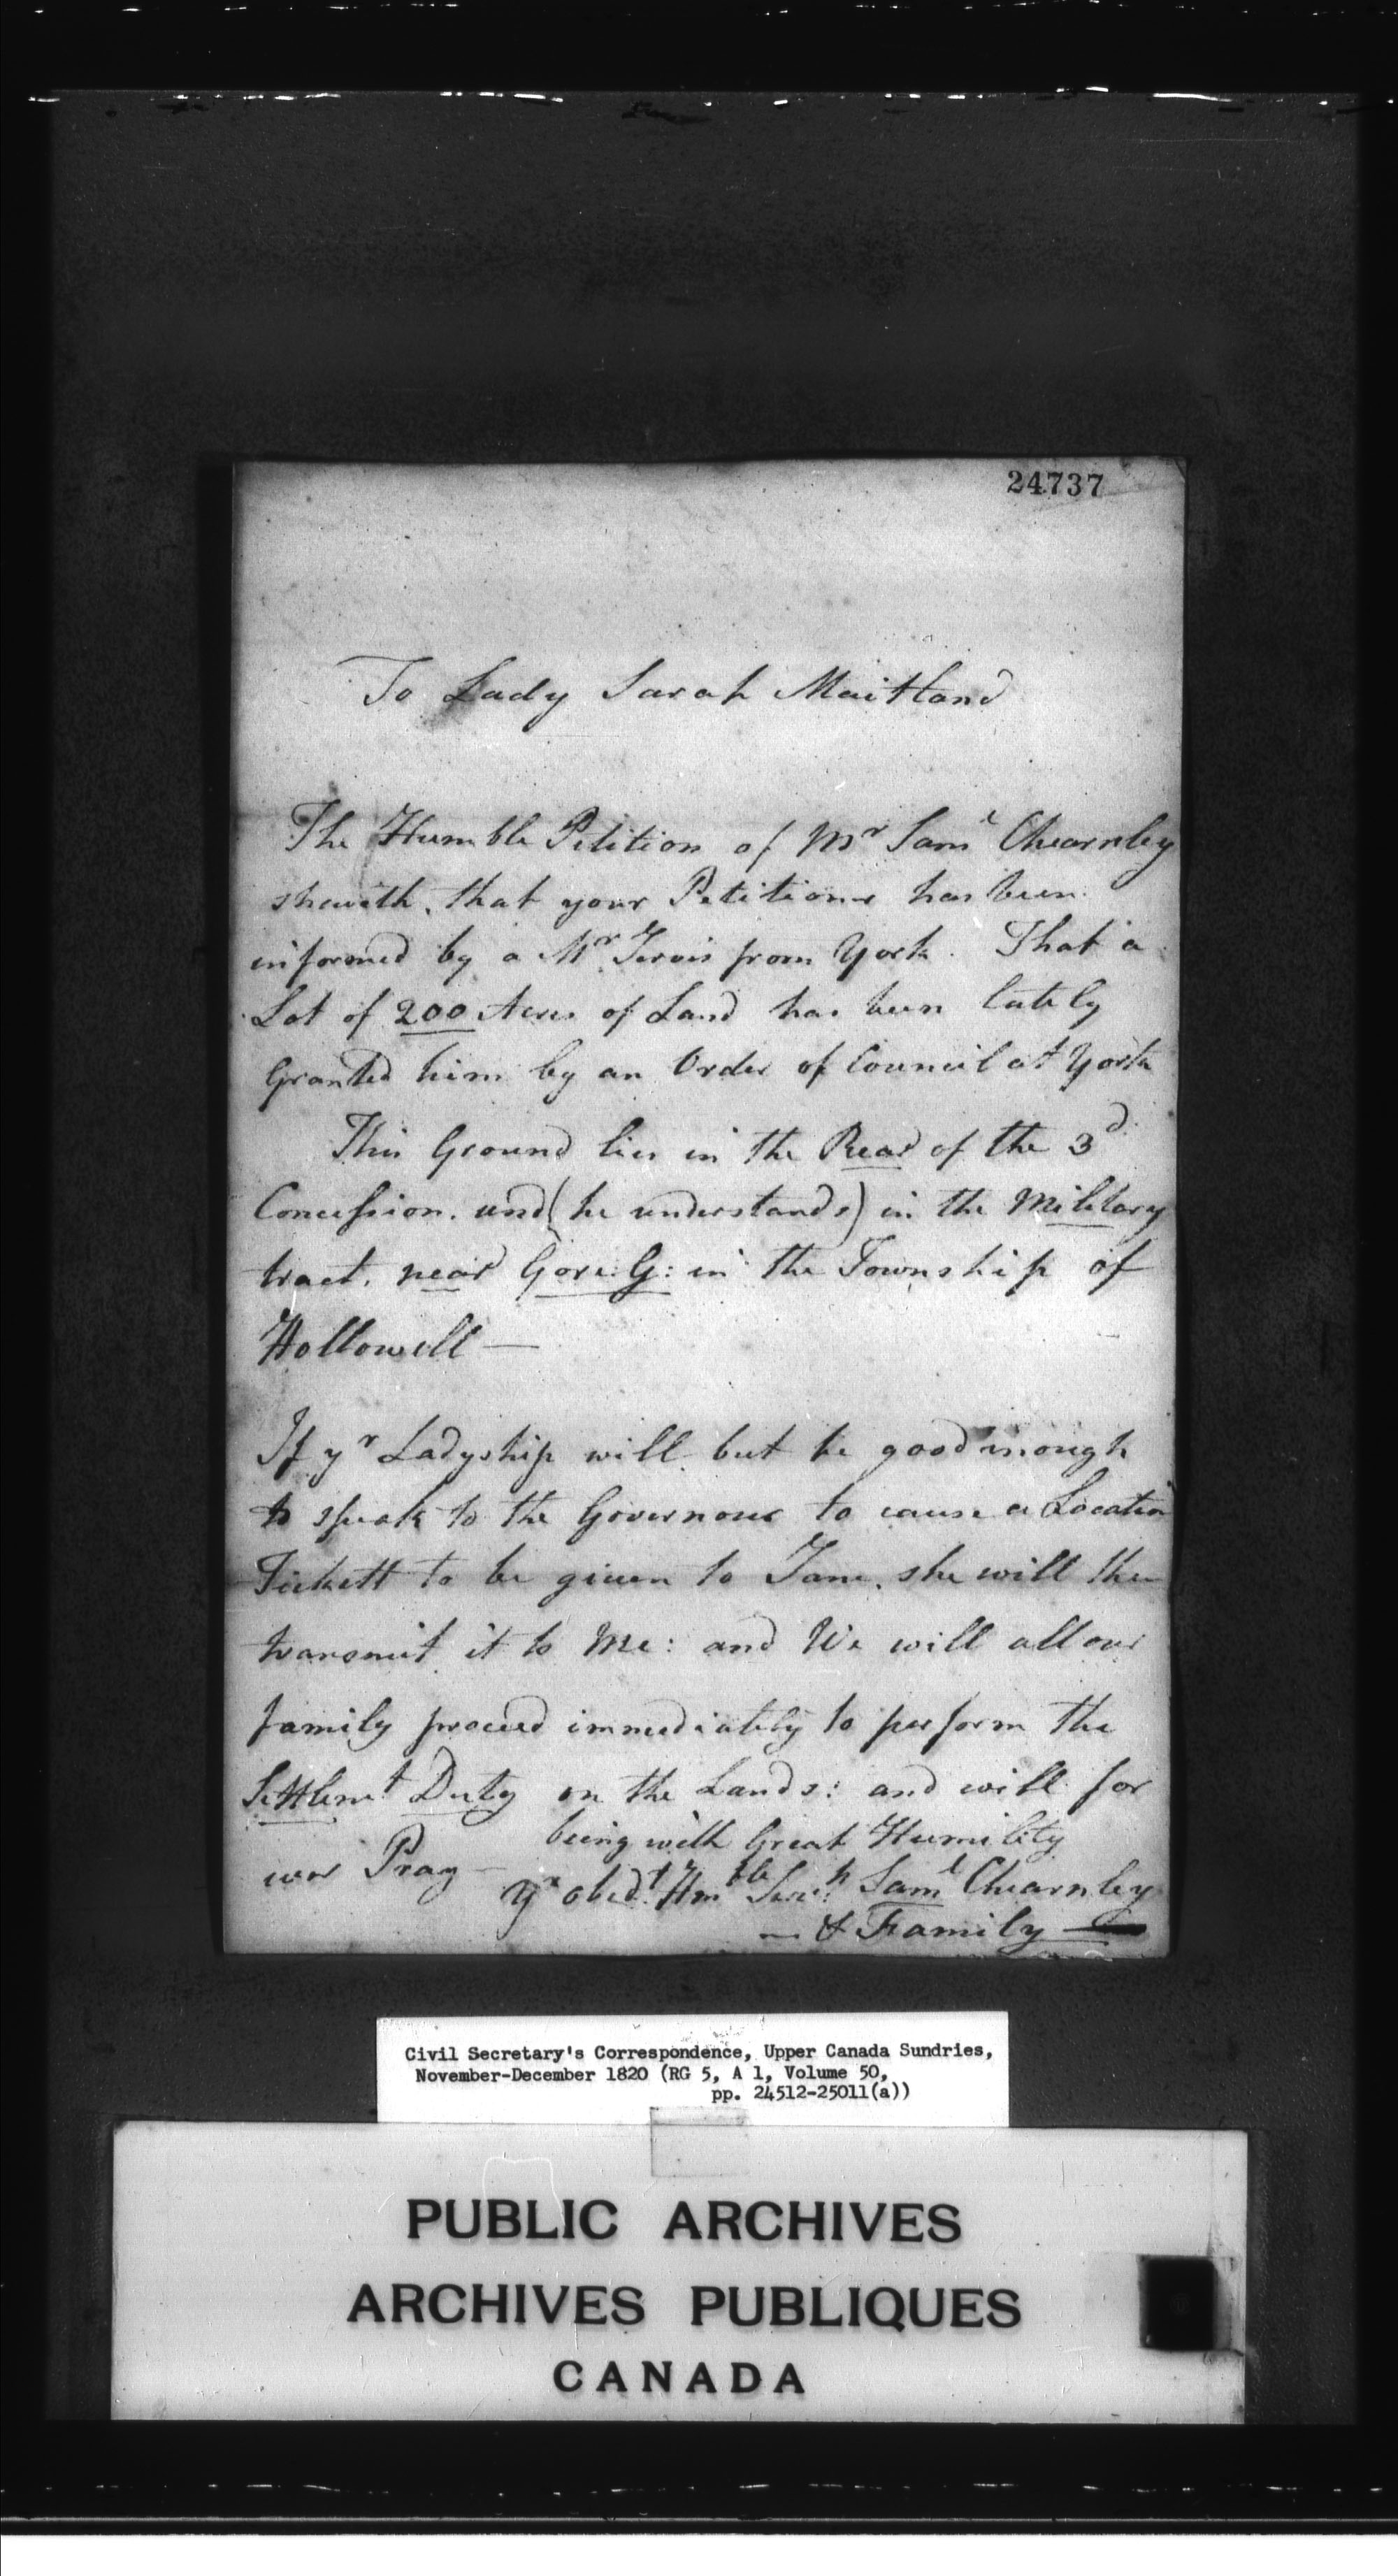 24737
To Lady Sarah Maitland
The Humble Petition of Mr Saml Chearnley
sheweth, that your Petitioner has been
informed by a Mr Jervis from York. That a
Lot of 200 Acres of Land has been lately
Granted him by an Order of Council at York
This Ground lies in the Rear of the 3d
Concession. and (he understands) in the Military
tract, near Gore G: in the Township of
Hollowell —
If yr Ladyship will but be good enough
to speak to the Governour to cause a Location
Tickett to be given to Jane, she will then
transmit it to Me: and We will all our
family proceed immediately to perform the
Settlemt Duty on the Lands: and will for
ever Pray — being with Great Humility
Yr obedt Hmble Servts Saml Chearnley
— & Family —
Civil Secretary's Correspondence, Upper Canada Sundries,
November-December 1820 (RG 5, A 1, Volume 50,
pp. 24512-25011(a))
PUBLIC ARCHIVES
ARCHIVES PUBLIQUES
CANADA